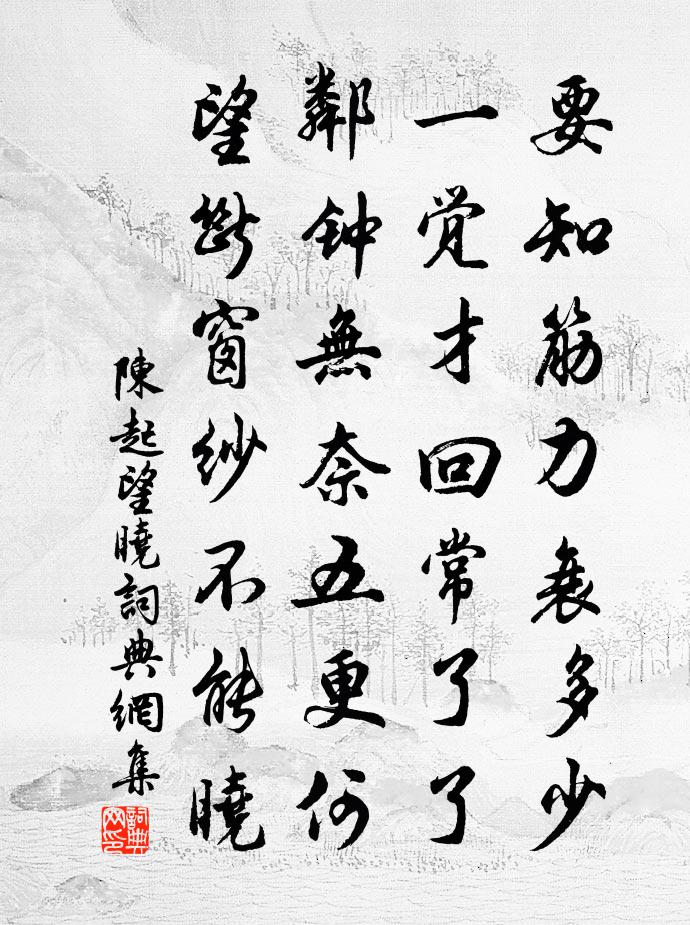 要知筋力衰多少
一觉才回常了了
鄰钟無奈五更何
望斷窗纱不能曉
陳起望曉詞典網集
詞典网印